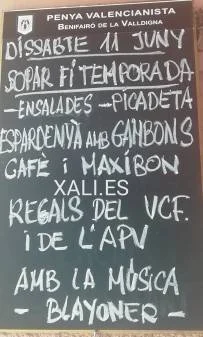 PENYA VALENCIANISTA
BENIFAIRÓ DE LA VALLDIGNA
DISSABTE 11 JUNY
SOPAR FI TEMPORADA
-ENSALADES -PICADETA
ESPARDENYÀ AMB GAMBONS
CAFÈ I MAXIBON
XALI.ES
REGALS DEL VCF.
I DE L'APV
AMB LA MÚSICA
- BLAYONER -